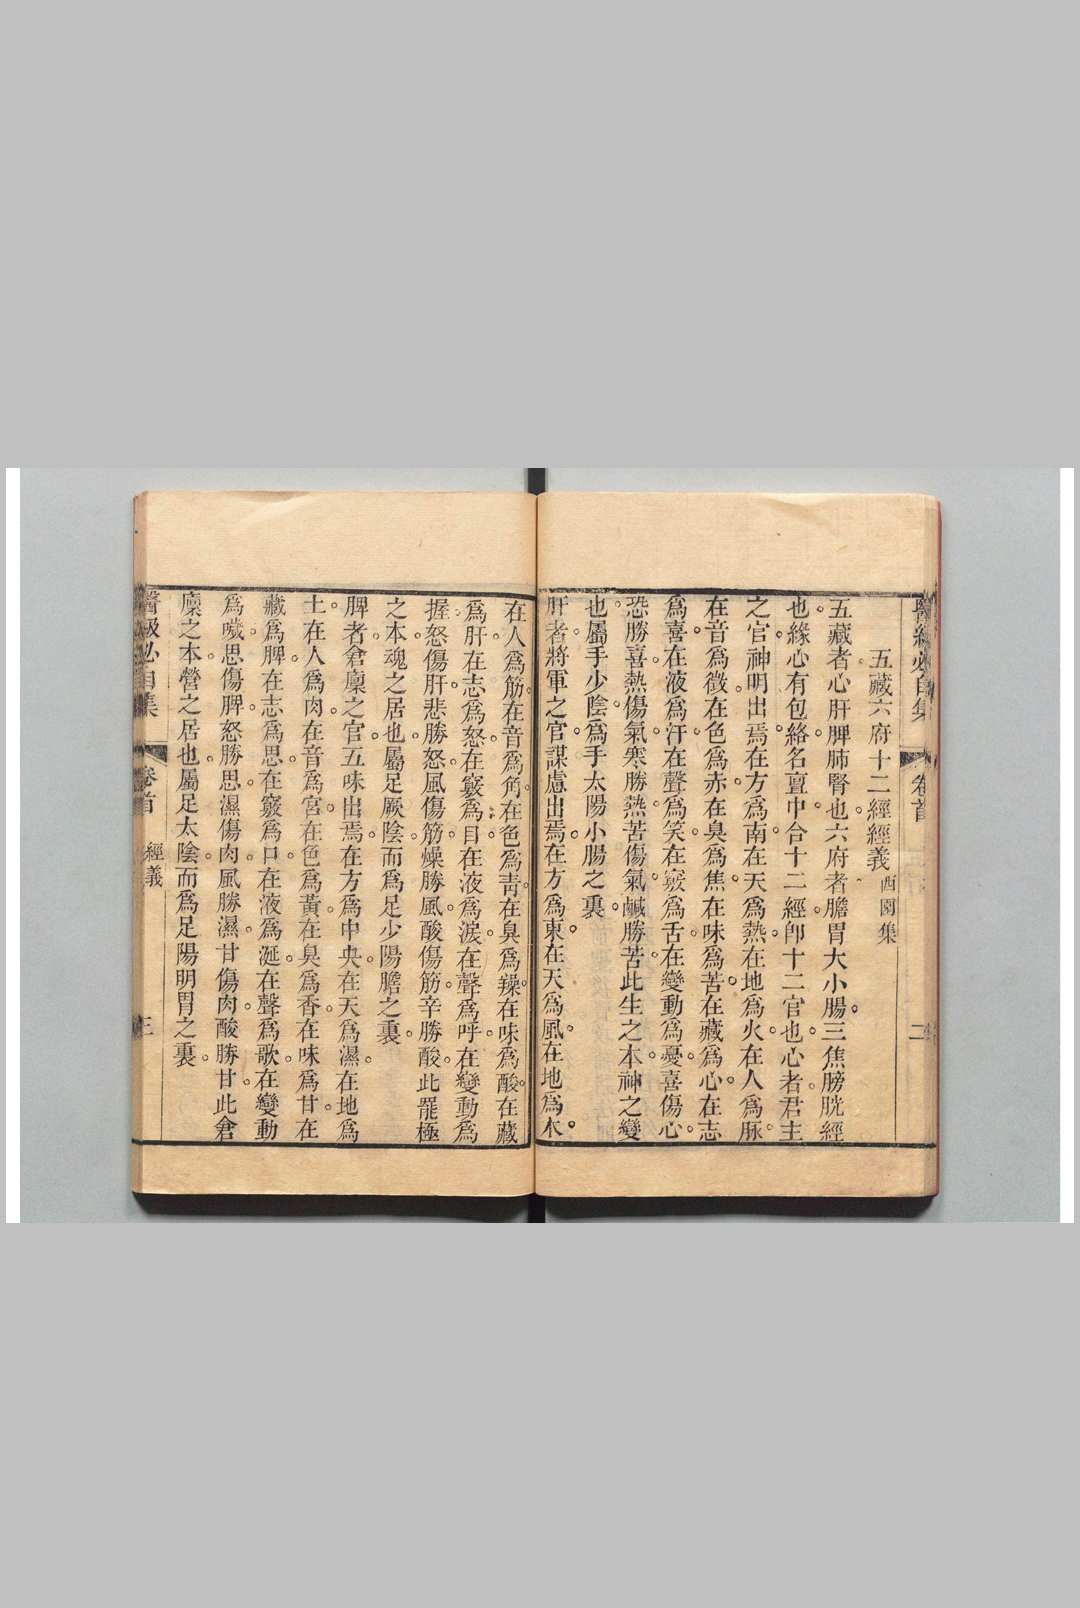 五藏六府十二經經義 酉園集
五藏者心肝脾肺腎也六府者膽胃大小腸三焦膀胱經
也緣心有包絡名亶中合十二經卽十二官也心者君主
之官神明出焉在方爲南在天爲熱在地爲火在人爲脈
在音爲徵在色爲赤在臭爲焦在味爲苦在藏爲心在志
爲喜在液爲汗在聲爲笑在竅爲舌在變動爲憂喜傷心
恐勝喜熱傷氣寒勝熱苦傷氣鹹勝苦此生之本神之變
也屬手少陰爲手太陽小腸之裏
肝者將軍之官謀慮出焉在方爲東在天爲風在地爲木
在人爲筋在音爲角在色爲靑在臭爲臊在味爲酸在藏
爲肝在志爲怒在竅爲目在液爲淚在聲爲呼在變動爲
握怒傷肝悲勝怒風傷筋燥勝風酸傷筋辛勝酸此罷極
之本魂之居也屬足厥陰而爲足少陽膽之裏
脾者倉廩之官五味出焉在方爲中央在天爲濕在地爲
土在人爲肉在音爲宮在色爲黃在臭爲香在味爲甘在
藏爲脾在志爲思在竅爲口在液爲涎在聲爲歌在變動
爲噦思傷脾怒勝思濕傷肉風勝濕甘傷肉酸勝甘此倉
廩之本營之居也屬足太陰而爲足陽明胃之裏
醫級必自集 卷首 經義 三